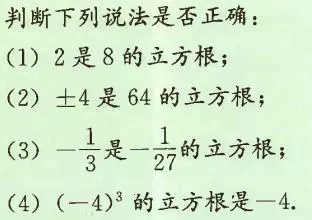 判断下列说法是否正确：
(1) 2是8的立方根；
(2) ±4是64的立方根；
(3) −1/3是−1/27的立方根；
(4) (−4)³的立方根是−4.